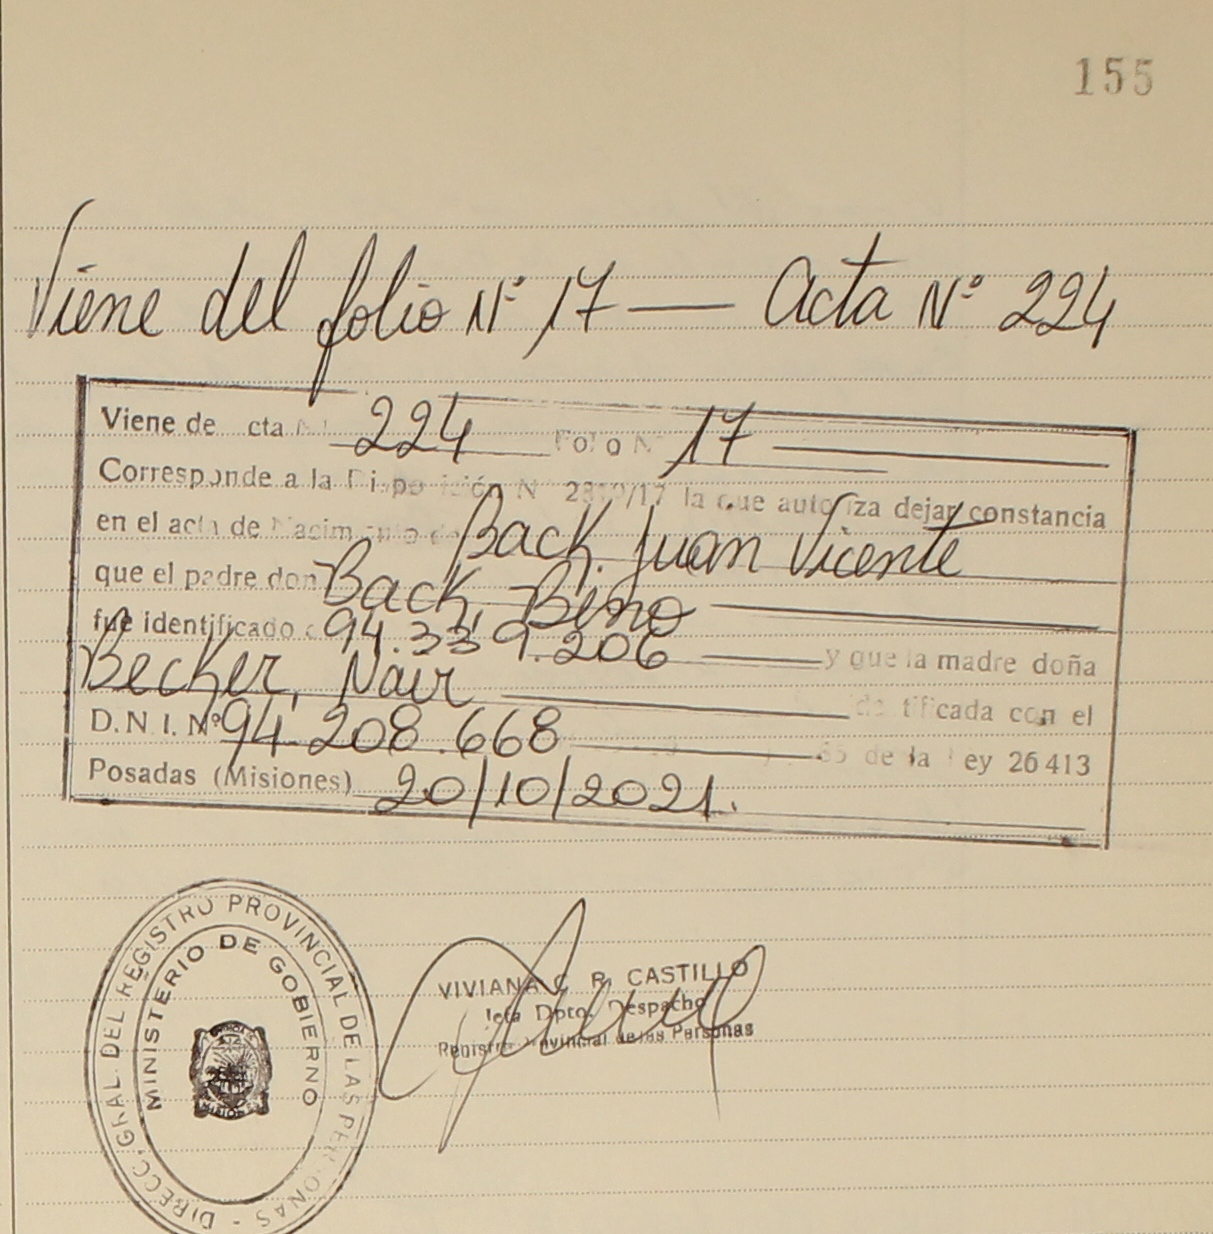 155
Viene del folio Nº 17 — Acta Nº 224
Viene de cta 224 Folio N 17
Corresponde a la N /17 la que autoriza dejar constancia
en el acta de Back, Juan Vicente
que el padre don Back, Beno
fue identificado c 94.339.206 y que la madre doña
Becker, Nair tificada con el
D.N.I. Nº 94.208.668 de la ey 26413
Posadas (Misiones) 20/10/2021.
DIRECC. GRAL. DEL REGISTRO PROVINCIAL DE LAS PER ONAS -
MINISTERIO DE GOBIERNO
VIVIANA C. R. CASTILLO
Dpto. Despacho
Registro Provincial de las Personas